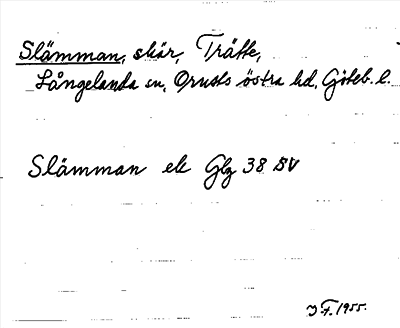 Slämman, skär, Tråtte,
Långelanda sn, Orusts östra hd, Göteb. l.
Slämman ek Glg 38 SV
J F. 1955.